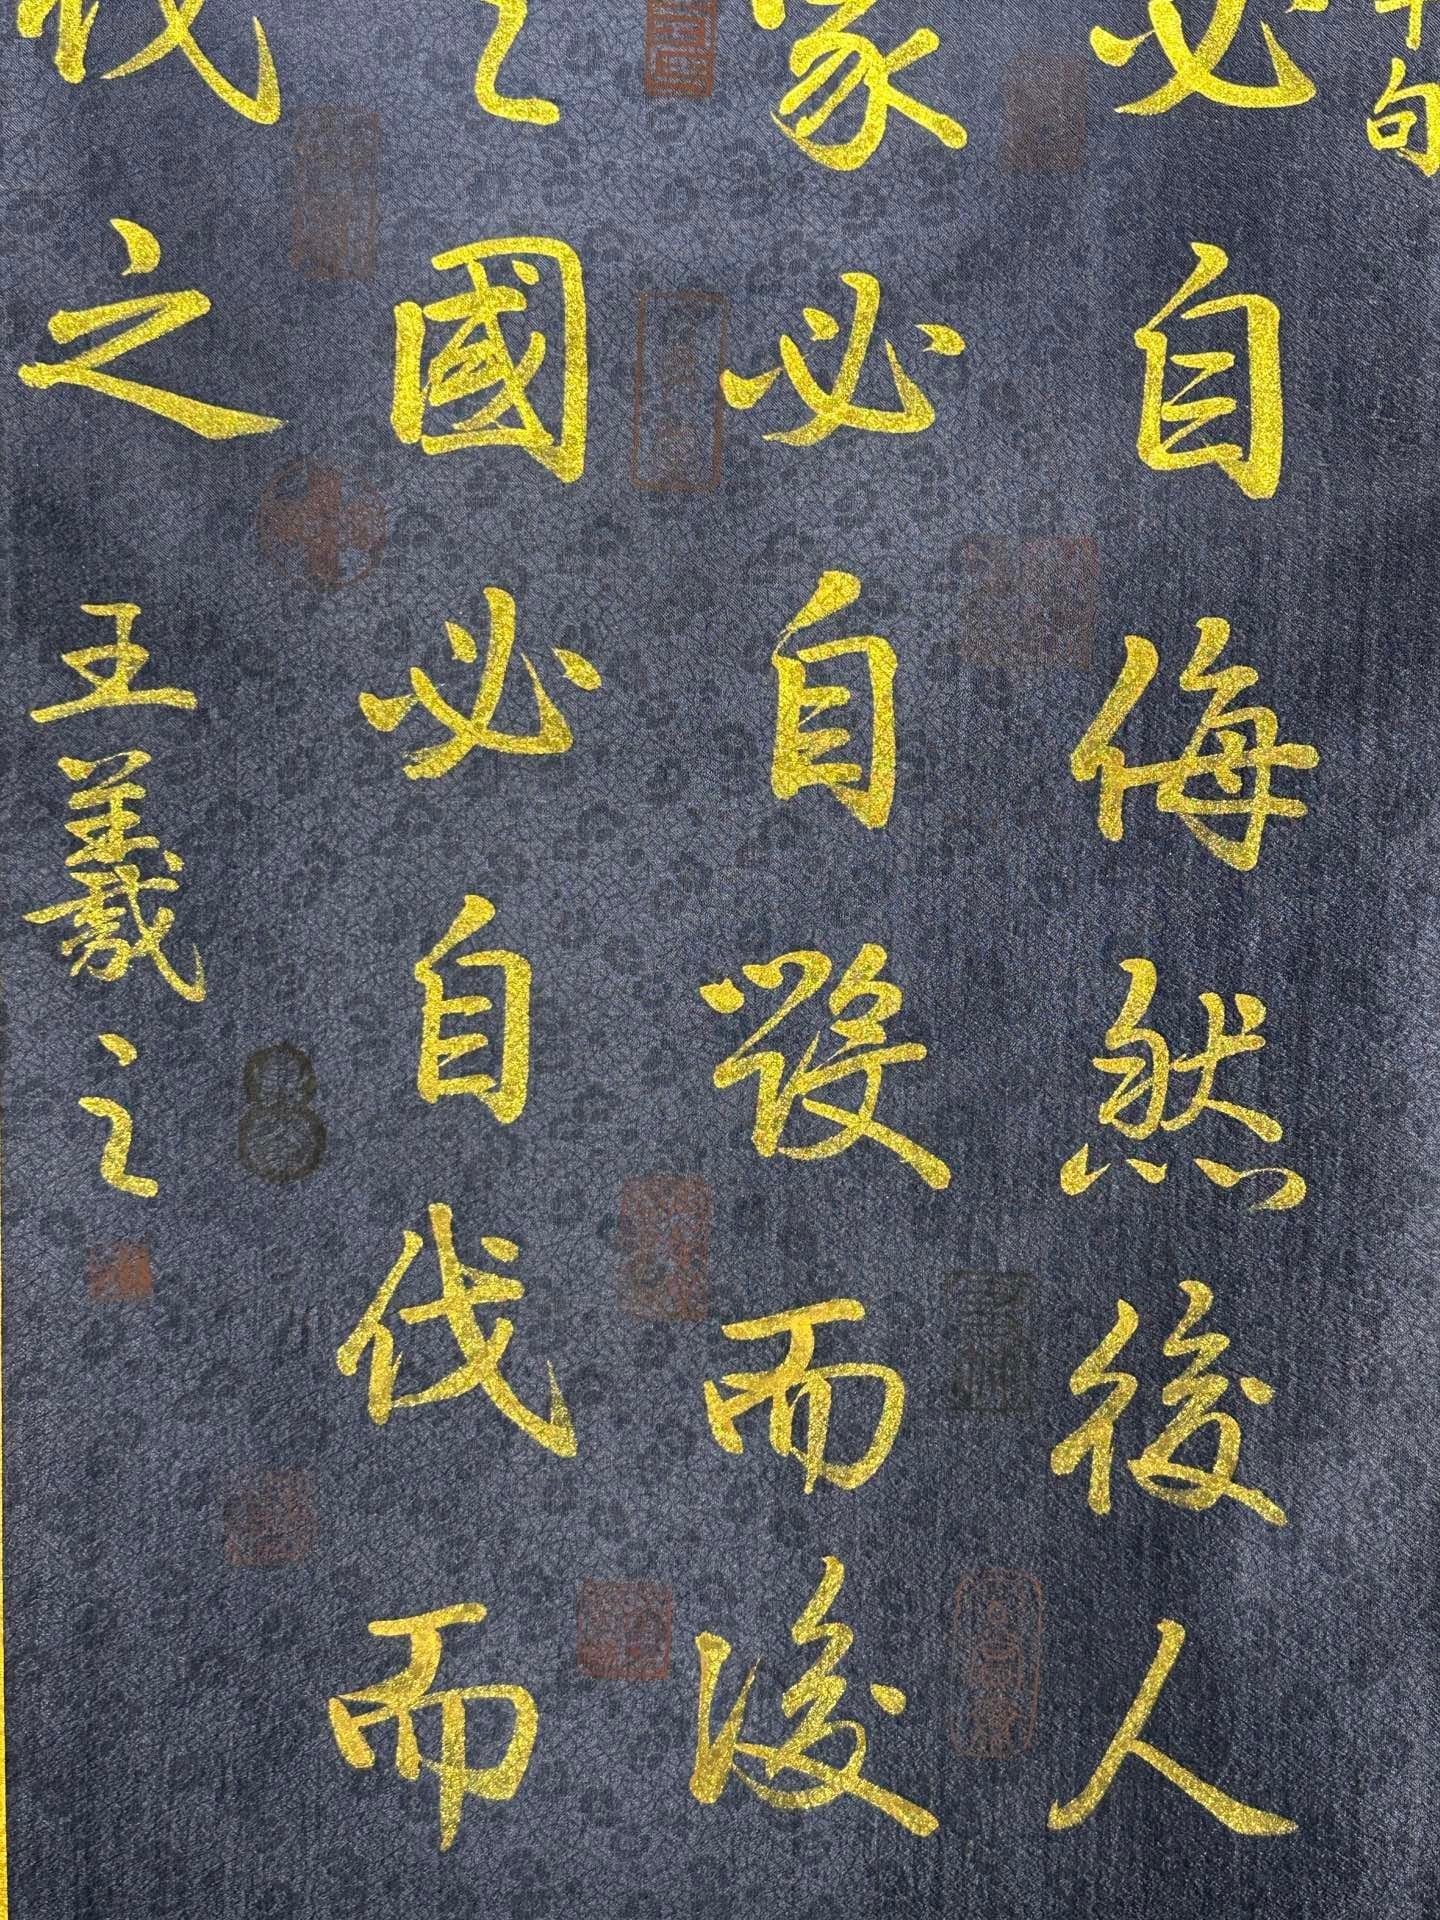 句
必自侮然後人
家必自毀而後
之國必自伐而
伐之
王羲之